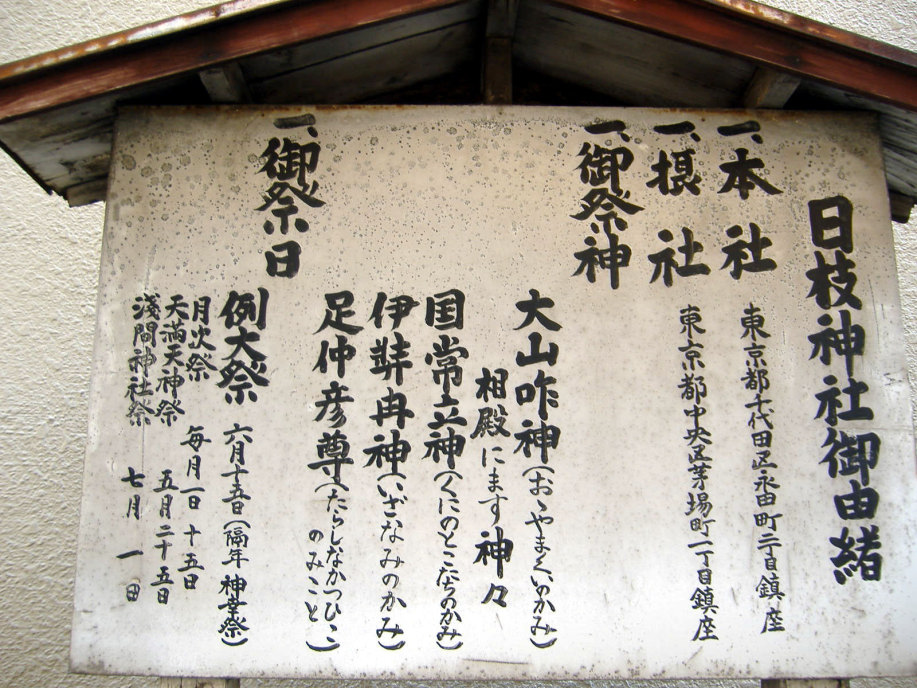 日枝神社御由緒
一、本社 東京都千代田区永田町二丁目鎮座
一、摂社 東京都中央区茅場町一丁目鎮座
一、御祭神
大山咋神(おゝやまくいのかみ)
相殿にます神々
国常立神(くにのとこたちのかみ)
伊弉冉神(いざなみのかみ)
足仲彦尊(たらしなかつひこ
のみこと)
一、御祭日
例大祭 六月十五日(隔年神幸祭)
月次祭 毎月一日 十五日
天満天神祭 五月二十五日
浅間神社祭 七月 一日